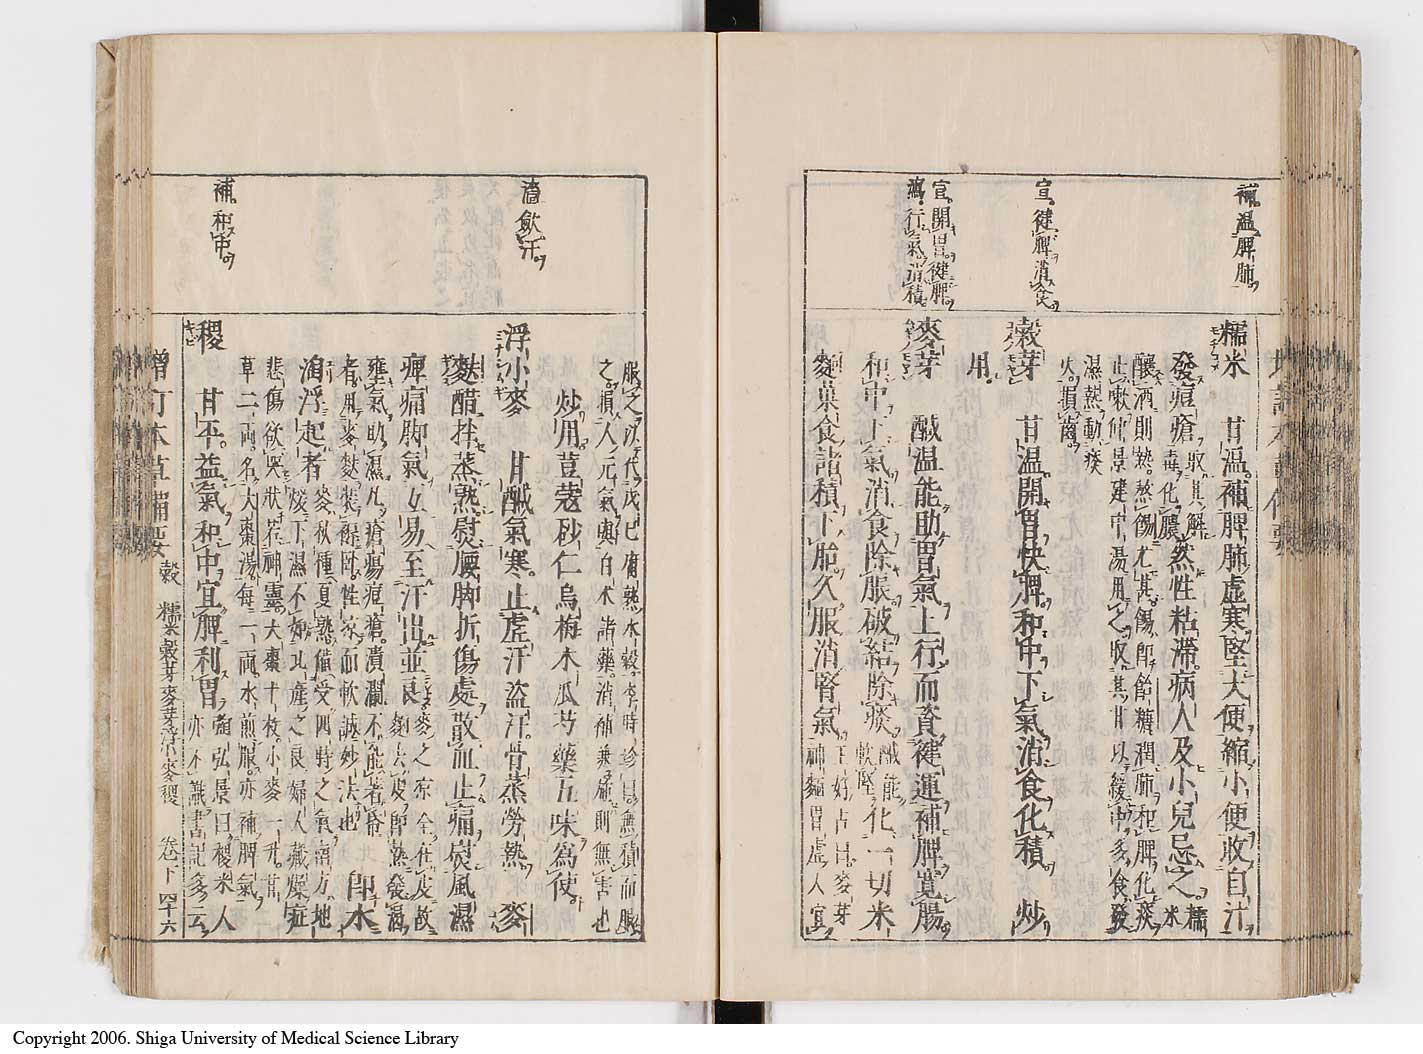 補温脾肺。
糯米
甘温。補脾肺虚寒。堅大便縮小便。收自汗
發痘瘡。
取其解
毒化膿。
然性粘滯。病人及小兒忌之。
糯
米
釀酒則熱。熬餳尤甚。餳即飴糖。潤肺和脾。化痰
止嗽。仲景建中湯用之。取其甘以緩中。多食發
濕熱動痰
火。損齒。
宣。健脾消食。
穀芽
甘温。開胃快脾。和中下氣。消食化積。炒
用。
宣。開胃健脾。
瀉。行氣消積。
麥芽
鹹温。能助胃氣上行。而資健運。補脾寛腸。
和中下氣。消食除脹。破結除痰。
鹹能
軟堅。
化一切米
麵菓食諸積。下胎。久服消腎氣。
王好古曰。麥芽
神麯胃虚人宜
服之。以代戊己。腐熟水穀。李時珍曰。無積而服
之。損人元氣。與白朮諸藥。消補兼施。則無害也
炒用。荳蔻砂仁烏梅木瓜芍藥五味為使。
濇。斂汗。
浮小麥
甘鹹氣寒。止虚汗盜汗。骨蒸勞熱。麥
麩醋拌蒸熟。熨腰脚折傷處。散血止痛。熨風濕
痺痛脚氣。互易至汗出並良。
麥之凉。全在皮。故
麪去皮即熱。發渇
瘡瘍痘瘡。潰爛不能
者。用麥麩裝褥臥。性凉而軟。誠妙法也
即水
淘浮起者。
麥。秋種夏熟。備受四時之氣。南方地
煖下濕。不如北產之良。婦人藏燥症
悲傷欲哭。狀若神靈。大棗十枚。小麥一升。甘
草二兩。名大棗湯。每一兩水煎服。亦補脾氣
補。和中。
稷
甘平。益氣和中。宜脾利胃。
陶弘景曰。稷米人
亦不識。書記多云
增訂本草備要
穀
糯米穀芽麥芽浮小麥稷
卷下
四十六
Copyright 2006. Shiga University of Medical Science Library